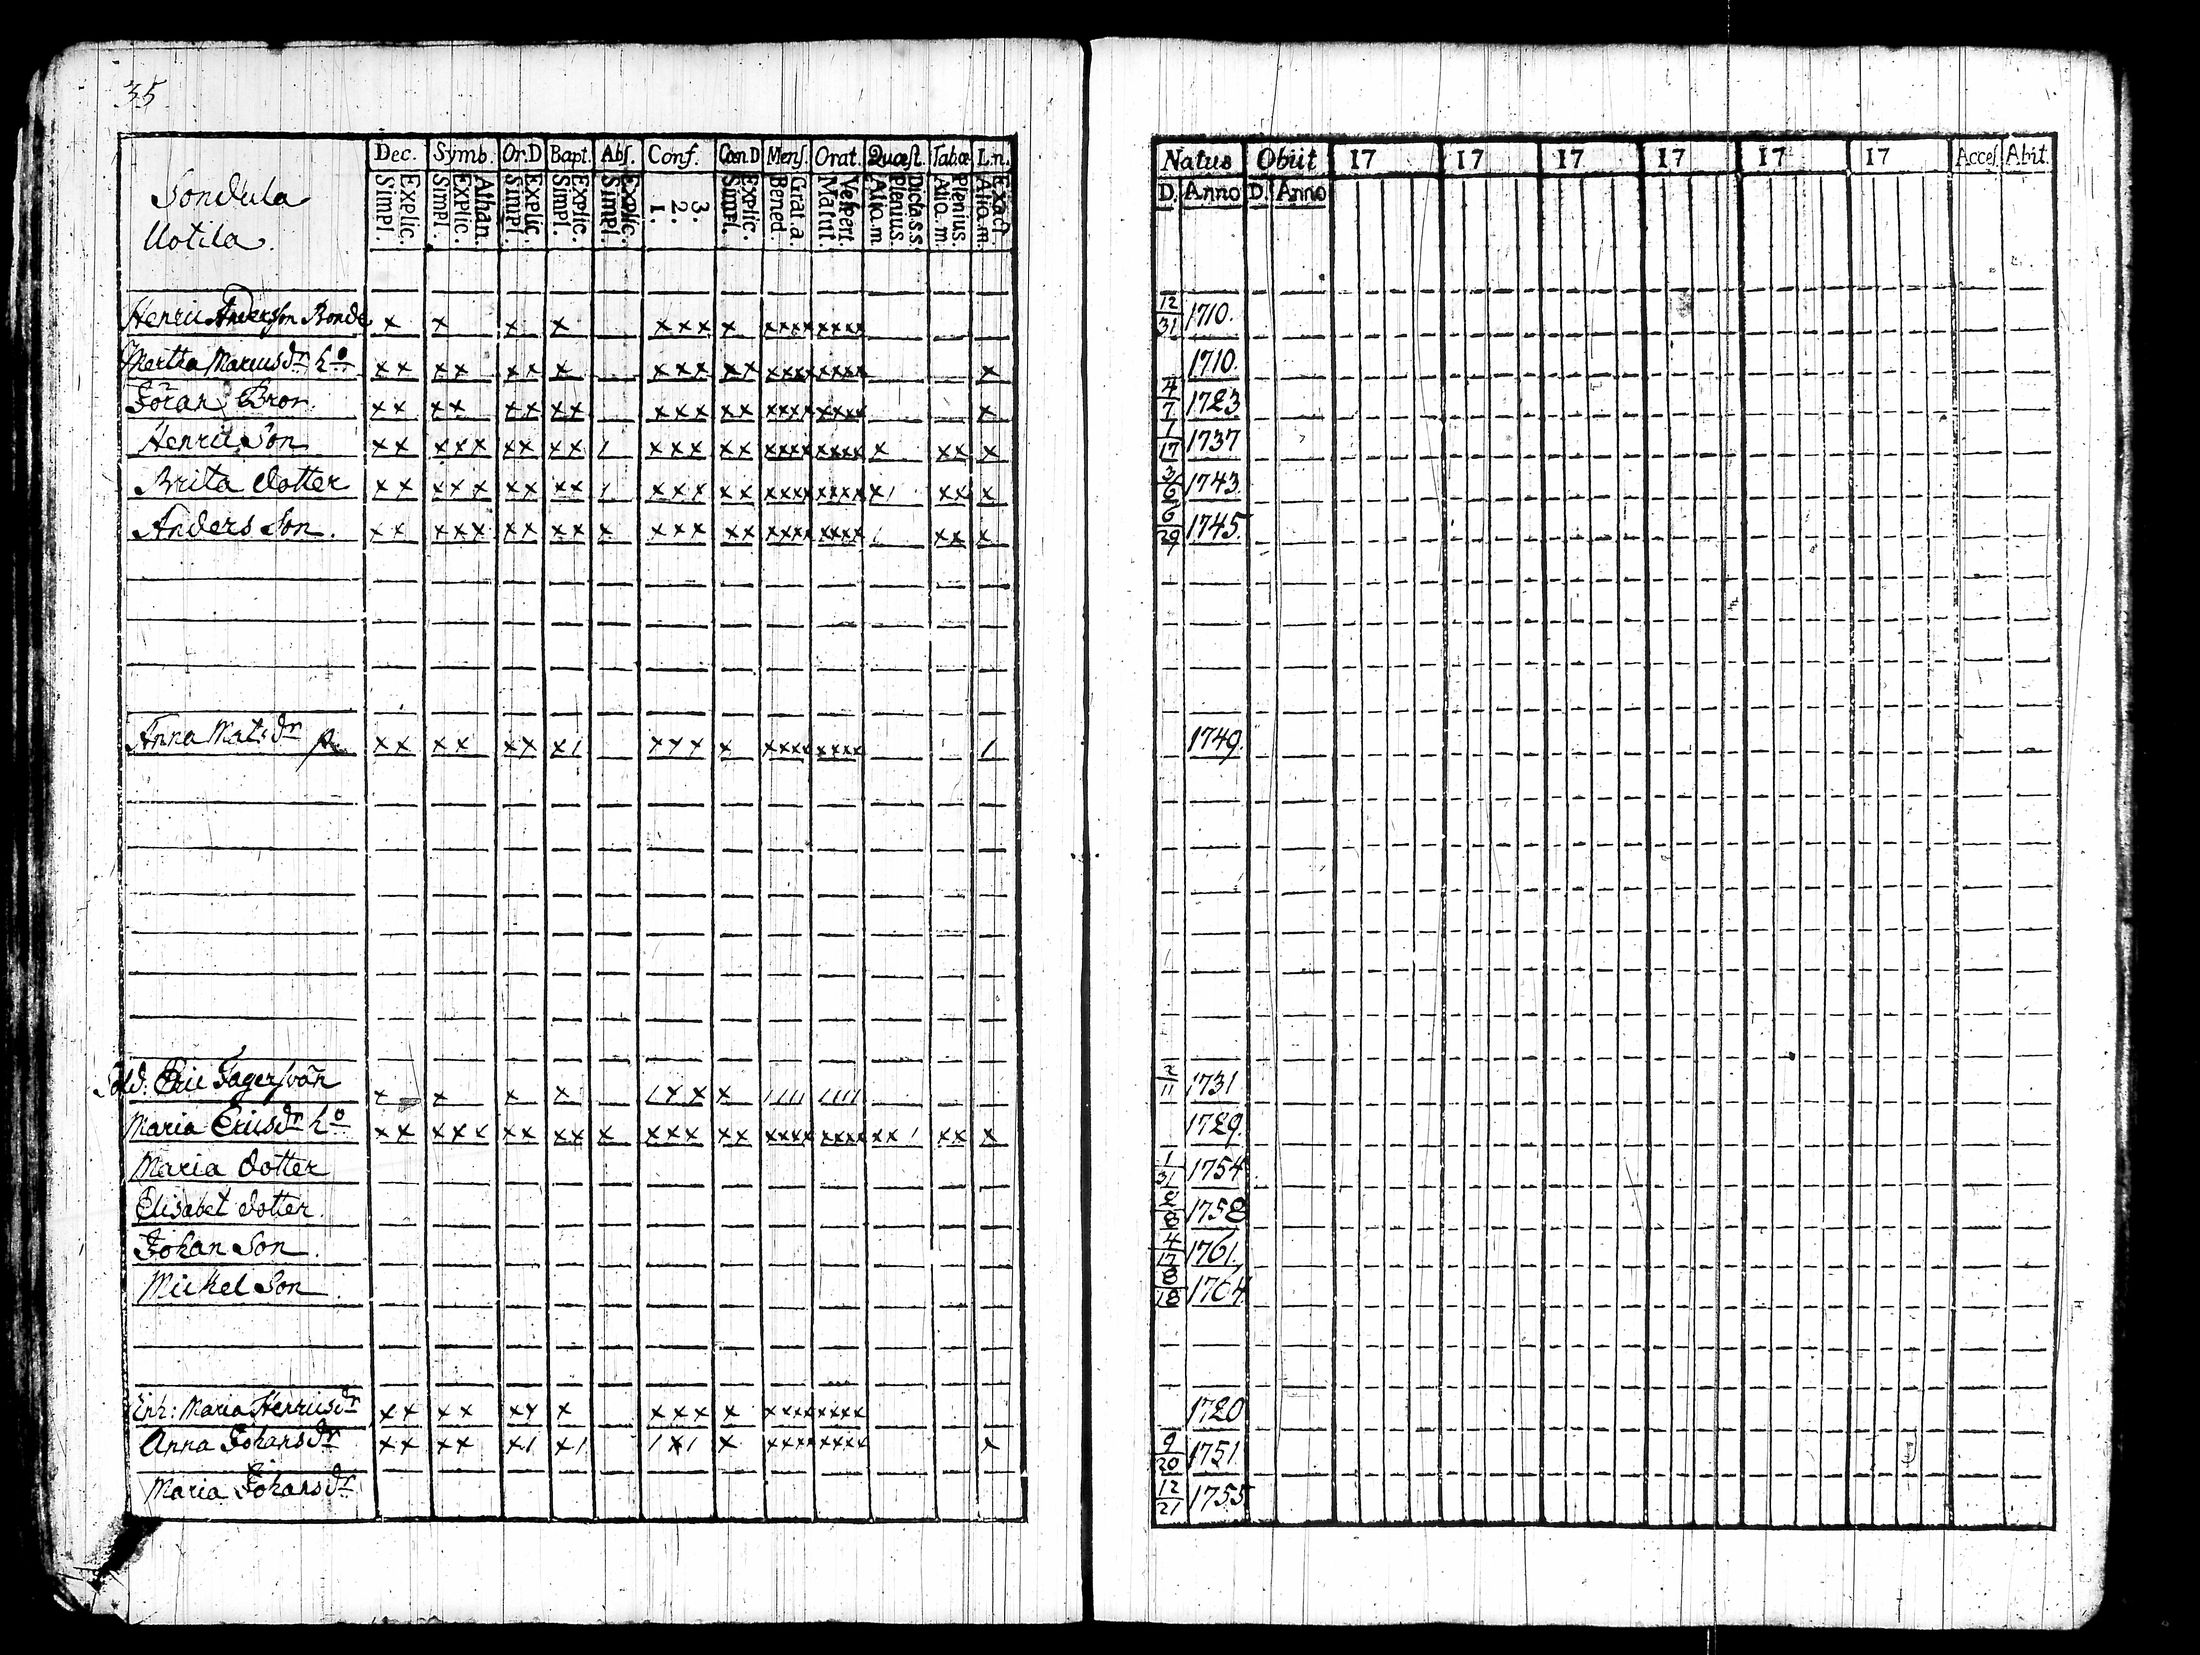 35
Dec. Symb. Or.D Bapt. Abs. Conf. Cœn.D Mens. Orat. Quæst. Tab.œ L.n.
Explic. Simpl. Athan. Explic. Simpl. Explic. Simpl. Explic. Simpl. Explic. Simpl. 3. 2. 1. Explic. Simpl. Grat.a. Bened. Vesper. Matut. Dicta.s.s. Plenius. Aliq.m. Plenius. Aliq.m. Exact. Aliq.m.
Natus Obiit 17 17 17 17 17 17 Acces. Abit.
D. Anno D. Anno
Sondula
Uotila.
Henric Andersson Bonde x x x x xxx x xxxx xxxx 12/31 1710.
Mertha Marcusdr h:o xx xx xx x xxx xx xxxx xxxx x 1710.
Jöran Bror xx xx xx xx xxx xx xxxx xxxx x 4/7 1723
Henric Son xx xxx xx xx / xxx xx xxxx xxxx x xx x 1/17 1737
Brita dotter xx xxx xx xx / xxx xx xxxx xxxx x/ xx x 3/6 1743.
Anders Son. xx xxx xx xx x xxx xx xxxx xxxx / xx x 6/29 1745.
Anna Mats dr xx xx xx x/ xxx x xxxx xxxx / 1749.
Sold. Eric Fagersvän x x x x /xx x //// //// 2/11 1731
Maria Ericsdr h:o xx xxx xx xx x xxx xx xxxx xxxx xx/ xx x 1729.
Maria dotter 1/31 1754
Elisabet dotter. 2/8 1758
Johan Son. 4/17 1761.
Mickel Son. 8/18 1764.
Enk: Maria Henricsdr xx xx xx x xxx x xxxx xxxx 1720
Anna Johansdr xx xx x/ x/ /x/ x xxxx xxxx x 9/20 1751.
Maria Johansdr 12/21 1755